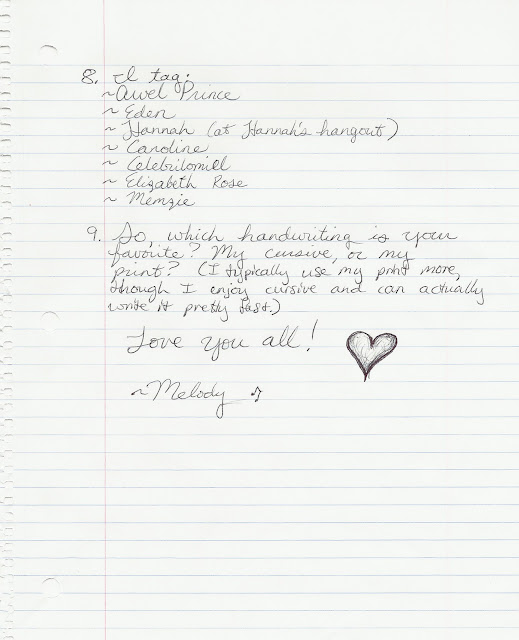 8. I tag:
~ Awel Prince
~ Eden
~ Hannah (at Hannah's hangout)
~ Caroline
~ Celebrilomiel
~ Elizabeth Rose
~ Memzie
9. So, which handwriting is your
favorite? My cursive, or my
print? (I typically use my print more,
though I enjoy cursive and can actually
write it pretty fast.)
Love you all!
~ Melody ♫